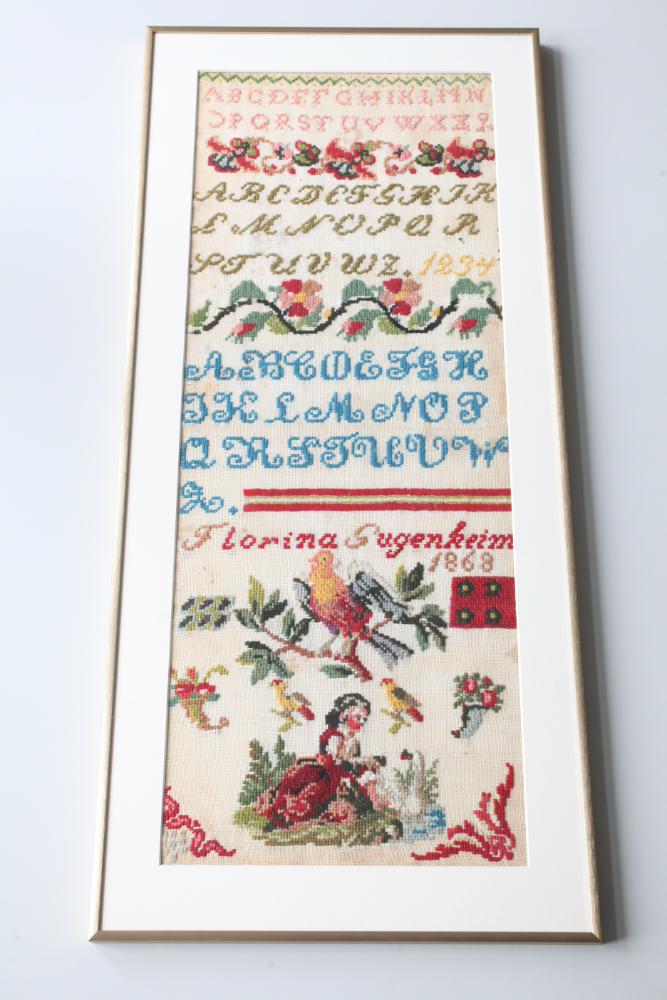 ABCDEFGHIKLMN
OPQRSTUVWXZ
ABCDEFGHIJK
LMNOPQR
STUVWZ. 1234
ABCDEFGH
IKLMNOP
QRSTUVW
Z.
Florina Gugenheim
1868